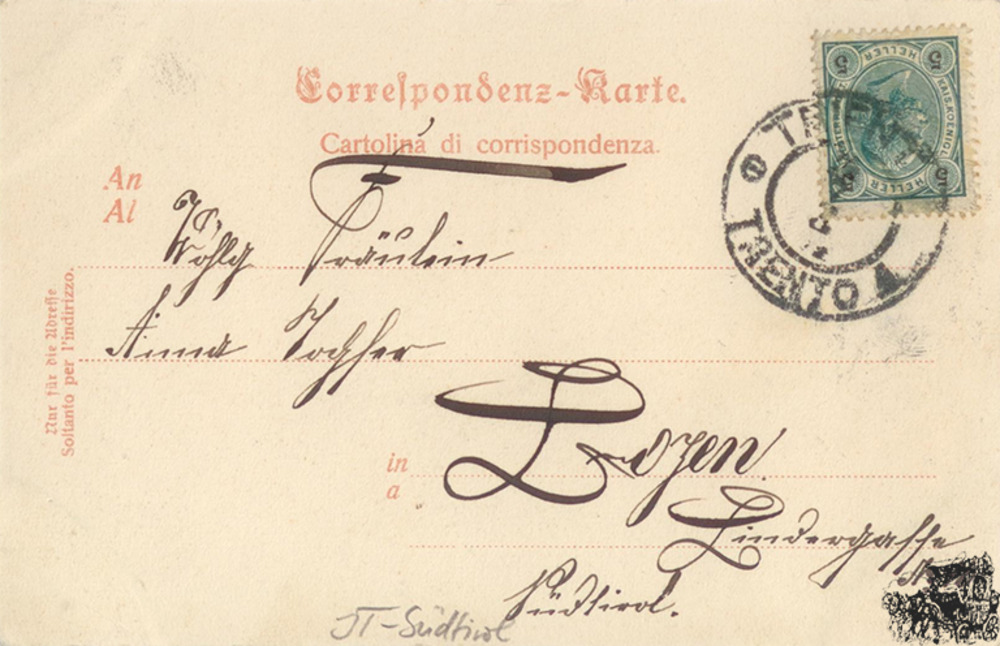 Correspondenz-Karte.
Cartolina di corrispondenza.
An
Al
Wohlg Fräulein
Anna
in Bozen
a
Bindergasse
Südtirol.
Nur für die Adresse
Soltanto per l'indirizzo.
5 HELLER 5
KAIS. KOENIGL.
5 HELLER 5
TRIENT
TRENTO
JT-Südtirol